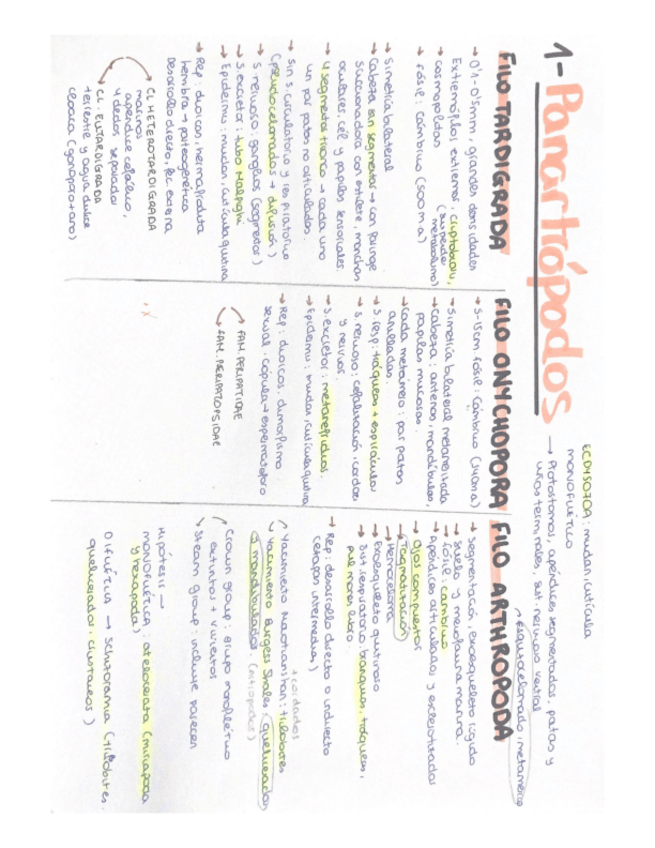 1- Panartrópodos
ECDYSOZOA: mudan, cutícula
monofilético
→ Protostomos, apéndices segmentados, patas y
uñas terminales, sist. nervioso ventral
→ esquizocelomado, metamérico
FILO TARDIGRADA
→ 0'1-0'5mm, grandes densidades
Extremófilos, extremos, criptobiosis,
(suspende
metabolismo)
→ cosmopolitas
→ fósil: cámbrico (500 m.a)
→ simetría bilateral
→ Cabeza sin segmentar → con faringe
succionadora con estilete, manchas
oculares, cél y papilas sensoriales.
→ 4 segmentos tronco → cada uno
un par patas no articuladas.
→ sin s. circulatorio y respiratorio
(pseudocelomados → difusión)
→ s. nervioso: ganglios (segmentos)
→ s. excretor: tubo Malpighi
→ Epidermis: mudan, cutícula quitina
→ Rep: dioicos, hermafrodita
hembra → partenogenética
Desarrollo directo, fec. externa
CL. HETEROTARDIGRADA
marinos
apéndice cefálico,
4 dedos separados
CL. EUTARDIGRADA
terrestre y agua dulce
cloaca (gonoporo + ano)
FILO ONYCHOPORA
→ 5-15cm. fósil: Cámbrico
→ simetría bilateral metamerizada
→ cabeza: antenas, mandíbulas,
papilas mucosas.
→ Cada metámero: par patas
anilladas.
→ s. resp: tráqueas + espiráculos
→ s. nervioso: cefalización, cordones
y nervios.
→ s. excretor: metanefridios.
→ Epidermis: mudan, cutícula quitina
→ Rep: dioicos, dimorfismo
sexual. cópula → espermatoforo
FAM. PERIPATIDAE
FAM. PERIPATOPSIDAE
FILO ARTHROPODA
→ Segmentación, exoesqueleto rígido
→ Suelo y meiofauna marina.
→ fósil: cámbrico
→ Apéndices articulados y esclerotizados
→ Ojos compuestos
→ Tagmatización
→ Hemoceloma
→ Exoesqueleto quitinoso
→ Sist. respiratorio branquias, tráqueas,
pulmones libro.
→ Rep: desarrollo directo o indirecto
(etapas intermedias)
+ cordados
Yacimiento Maotianshan: trilobites
Yacimiento Burgess Shales: quelicerados
y mandibulados
Crown group: grupo monofilético
extintos + vivientes
Steam group: incluye parecen
Hipótesis →
monofilética: atelocerata (miriápoda
y hexapoda)
Difilética → Schizoramia (trilobites,
quelicerados, crustáceos)